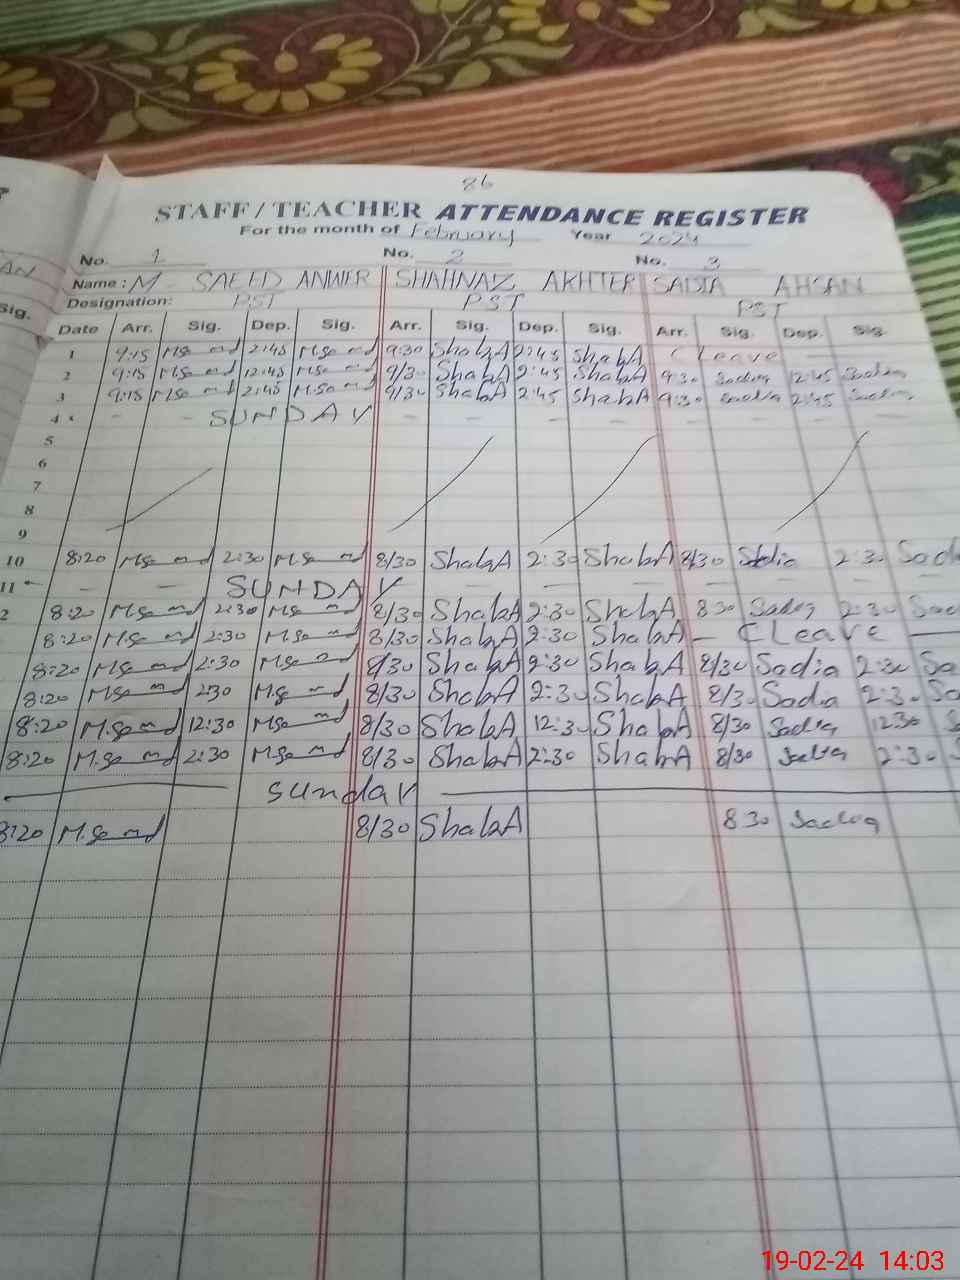 86
STAFF / TEACHER ATTENDANCE REGISTER
For the month of February Year 2024
No. 1 No. 2 No. 3
Name: M. SAEED ANWER SHAHNAZ AKHTER SADIA AHSAN
Designation: PST PST PST
Sig.
Date Arr. Sig. Dep. Sig. Arr. Sig. Dep. Sig. Arr. Sig. Dep. Sig.
1 9:15 2:45 9:30 ShabA 2:45 ShabA C Leave
2 9:15 12:45 9/30 ShabA 2:45 ShabA 9:30 Sadia 12:45 Sadia
3 9:15 2:45 9/30 ShabA 2:45 ShabA 9:30 Sadia 2:45 Sadia
4 - - SUNDAY - - - - - - - -
5
6
7
8
9
10 8:20 2:30 8/30 ShabA 2:30 ShabA 8/30 Sadia 2:30 Sad
11 - - SUNDAY - - - - - - - -
2 8:20 2:30 8/30 ShabA 2:30 ShabA 8 30 Sadia 2:30 Sad
8:20 2:30 8/30 ShabA 2:30 ShabA - C Leave
8:20 2:30 8/30 ShabA 2:30 ShabA 8/30 Sadia 2:30 Sa
8:20 2:30 8/30 ShabA 2:30 ShabA 8/30 Sadia 2:30 Sa
8:20 12:30 8/30 ShabA 12:30 ShabA 8/30 Sadia 12:30 S
8:20 2:30 8/30 ShabA 2:30 ShabA 8/30 Sadia 2:30 S
Sunday
8:20 8/30 ShabA 8 30 Sadia
19-02-24 14:03